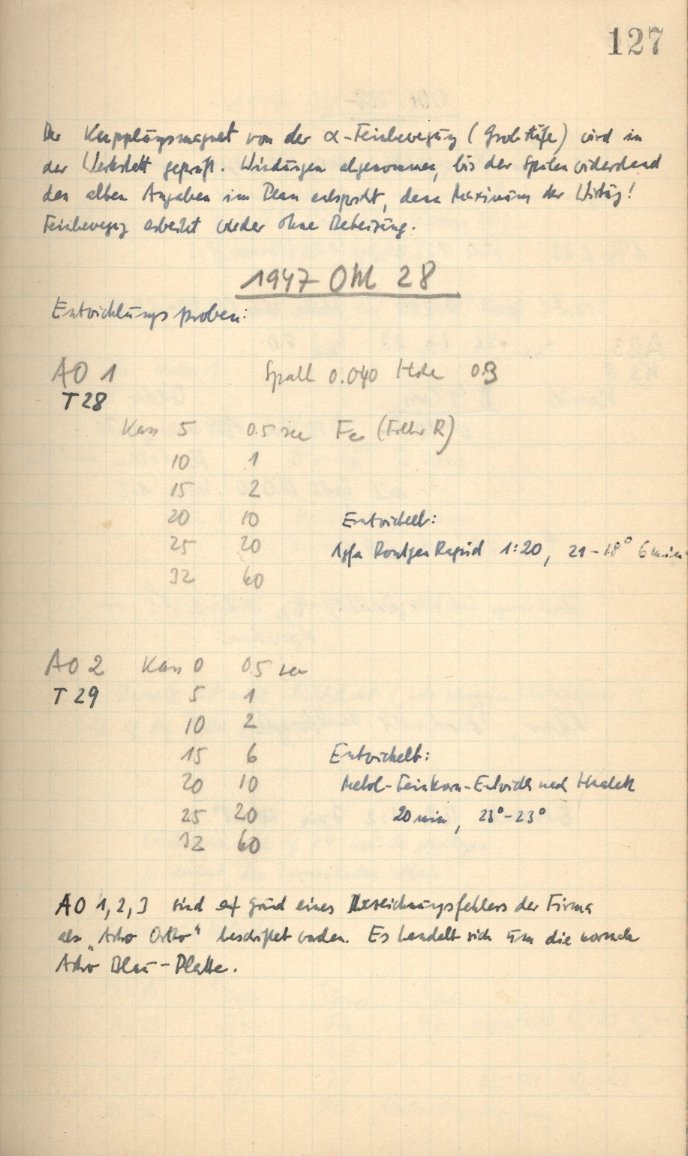 127
Der Kupplungsmagnet von der α-Feinbewegung (Grobstufe) wird in
der Werkstatt geprüft. Windungen abgenommen, bis der Spulenwiderstand
den alten Angaben im Plan entspricht, denn Maximum der Wirkg!
Feinbewegg arbeitet wieder ohne Beheizung.
1947 OM 28
Entwicklungsproben:
AO 1 Spalt 0.040 Höhe 0.3
T 28
Kass 5 0.5 sec Fe (Filter R)
10 1
15 2
20 10 Entwickelt:
25 20 Agfa Röntgen Rapid 1:20, 21-18° 6 min
32 60
AO 2 Kass 0 0.5 sec
T 29 5 1
10 2
15 6 Entwickelt:
20 10 Metol-Feinkorn-Entwickl nach
25 20 20 min, 23°-23°
32 60
AO 1, 2, 3 sind auf Grund eines Bezeichnungsfehlers der Firma
als "Astro Ortho" beschriftet worden. Es handelt sich um die normale
Astro Blau-Platte.